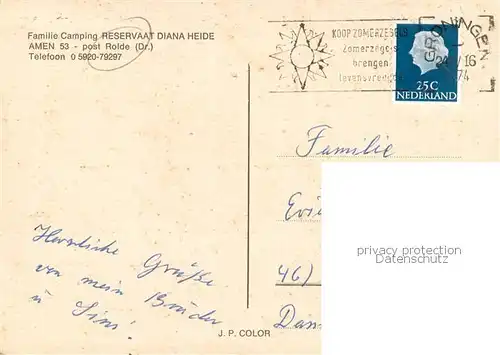 Familie Camping RESERVAAT DIANA HEIDE
AMEN 53 - post Rolde (Dr.)
Telefoon 0 5920-79297
KOOP ZOMERZEGELS
Zomerzegels
brengen
levensvreugde
GRONINGEN
16
74
25C
NEDERLAND
Familie
46)
Herzliche Grüße
von mein Bruder
u
J. P. COLOR
privacy protection
Datenschutz